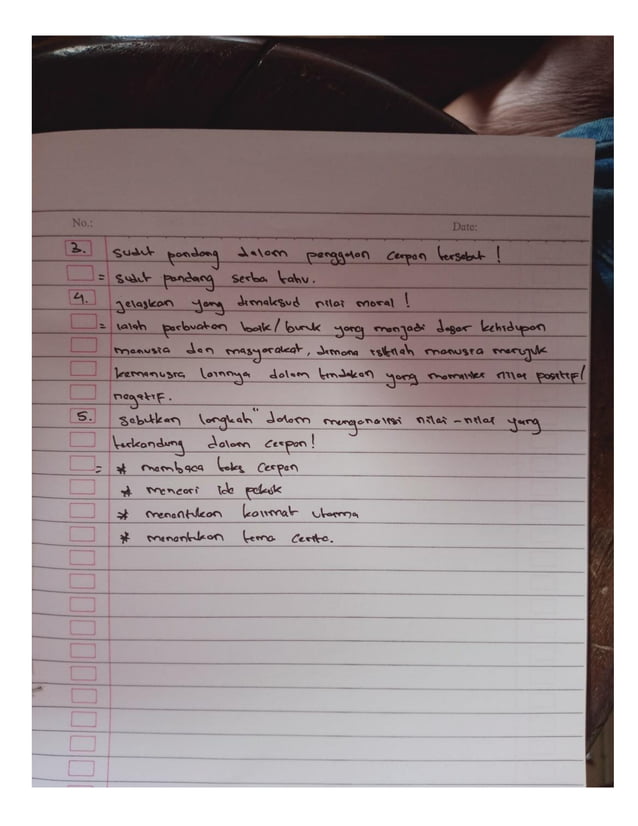 No.: Date:
3. Sudut pandang dalam penggalan cerpan tersebut !
= Sudut pandang serba tahu.
4. Jelaskan yang dimaksud nilai moral !
= ialah perbuatan baik / buruk yang menjadi dasar kehidupan
manusia dan masyarakat, dimana istilah manusia merujuk
kemanusia lainnya dalam tindakan yang nilai positif /
negatif.
5. Sebutkan langkah" dalam menganalisi nilai - nilai yang
terkandung dalam cerpan !
= * membaca teks cerpan
* mencari ide pokok
* menentukan kalimat utama
* menentukan tema cerita.